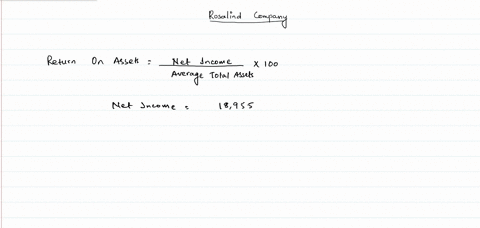 Rosalind Company
Return On Assets = Net Income / Average Total Assets × 100
Net Income = 18,955